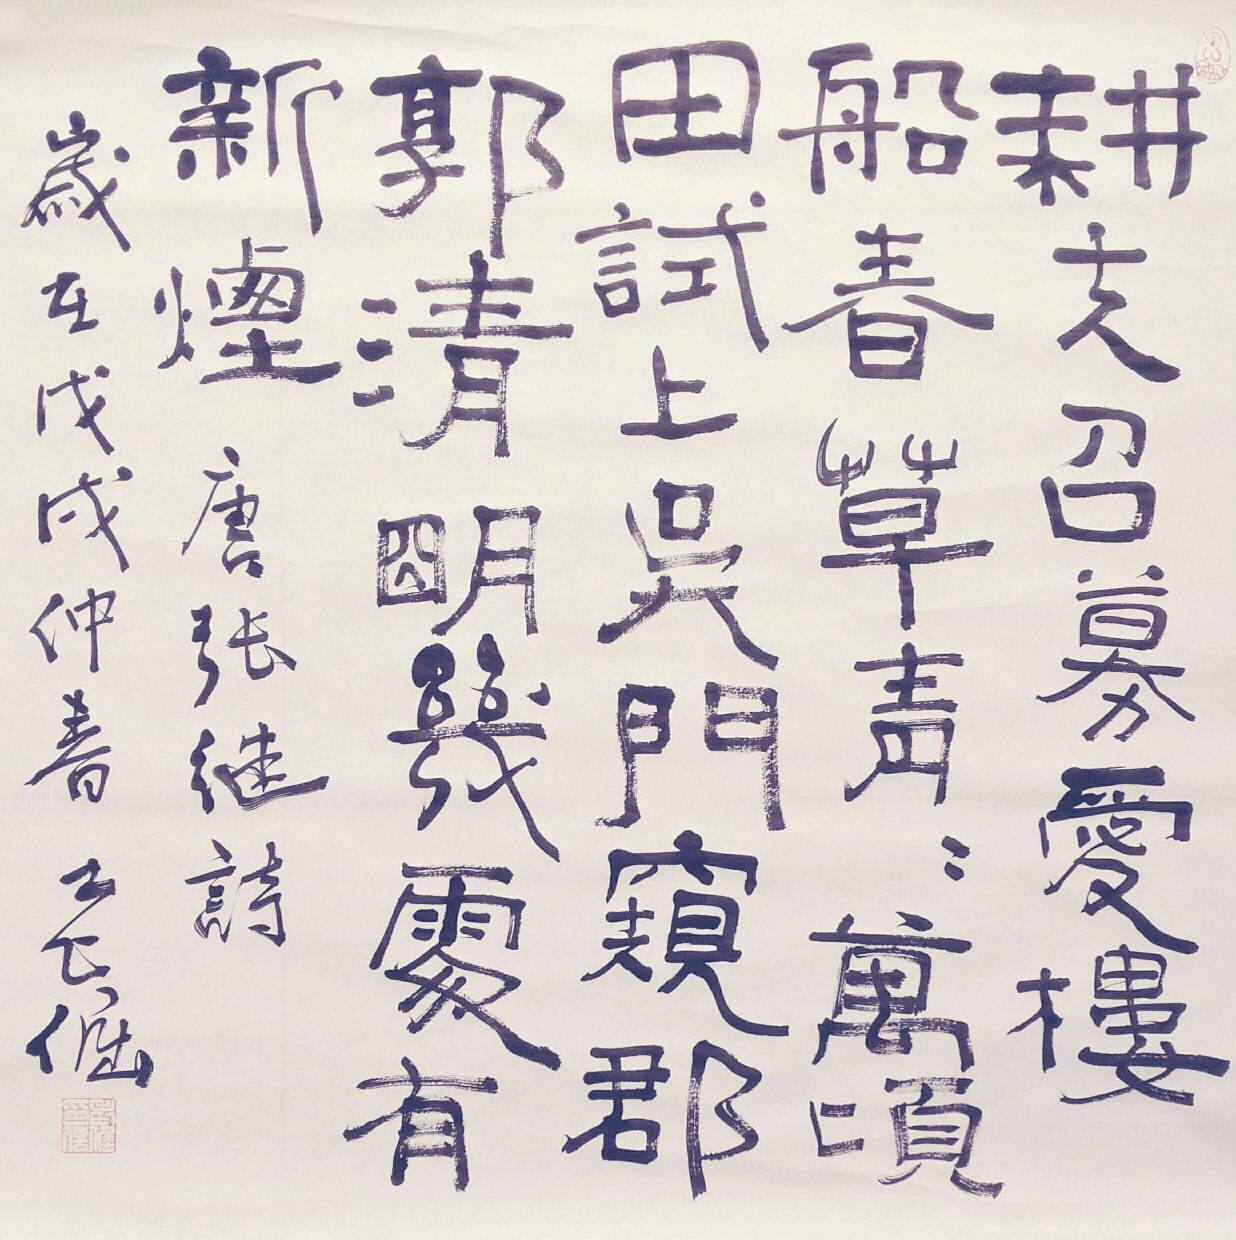 耕夫召募愛樓
船春草青々萬頃
田試上吳門窺郡
郭清明幾處有
新煙 唐张继詩
歲在戊戌仲春